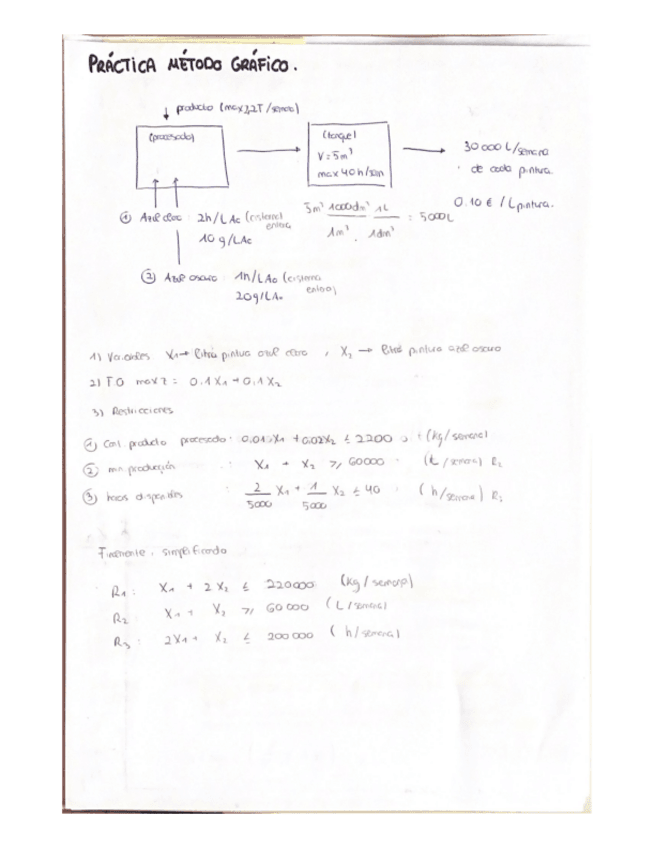 PRÁCTICA MÉTODO GRÁFICO.
producto (max 2,2T/semana)
(procesado)
(tanque)
V = 5m³
max 40h/sem
30000 L/semana
de cada pintura.
0.10 € / L pintura.
① Azul claro: 2h/LAc (cisterna entera
10 g/LAc
5m³ 1000dm³ 1L
1m³ . 1dm³ = 5000L
② Azul oscuro: 1h/LAo (cisterna entera)
20g/LAo
1) Variables X1 → litros pintura azul claro, X2 → litros pintura azul oscuro
2) F.O max Z = 0.1X1 + 0.1X2
3) Restricciones
① Cant. producto procesado: 0.01X1 + 0.02X2 ≤ 2200 (kg/semana)
② min producción : X1 + X2 ≥ 60000 (L/semana) R2
③ horas disponibles : 2/5000 X1 + 1/5000 X2 ≤ 40 (h/semana) R3
Finalmente, simplificado
R1: X1 + 2X2 ≤ 220000 (kg/semana)
R2: X1 + X2 ≥ 60000 (L/semana)
R3: 2X1 + X2 ≤ 200000 (h/semana)